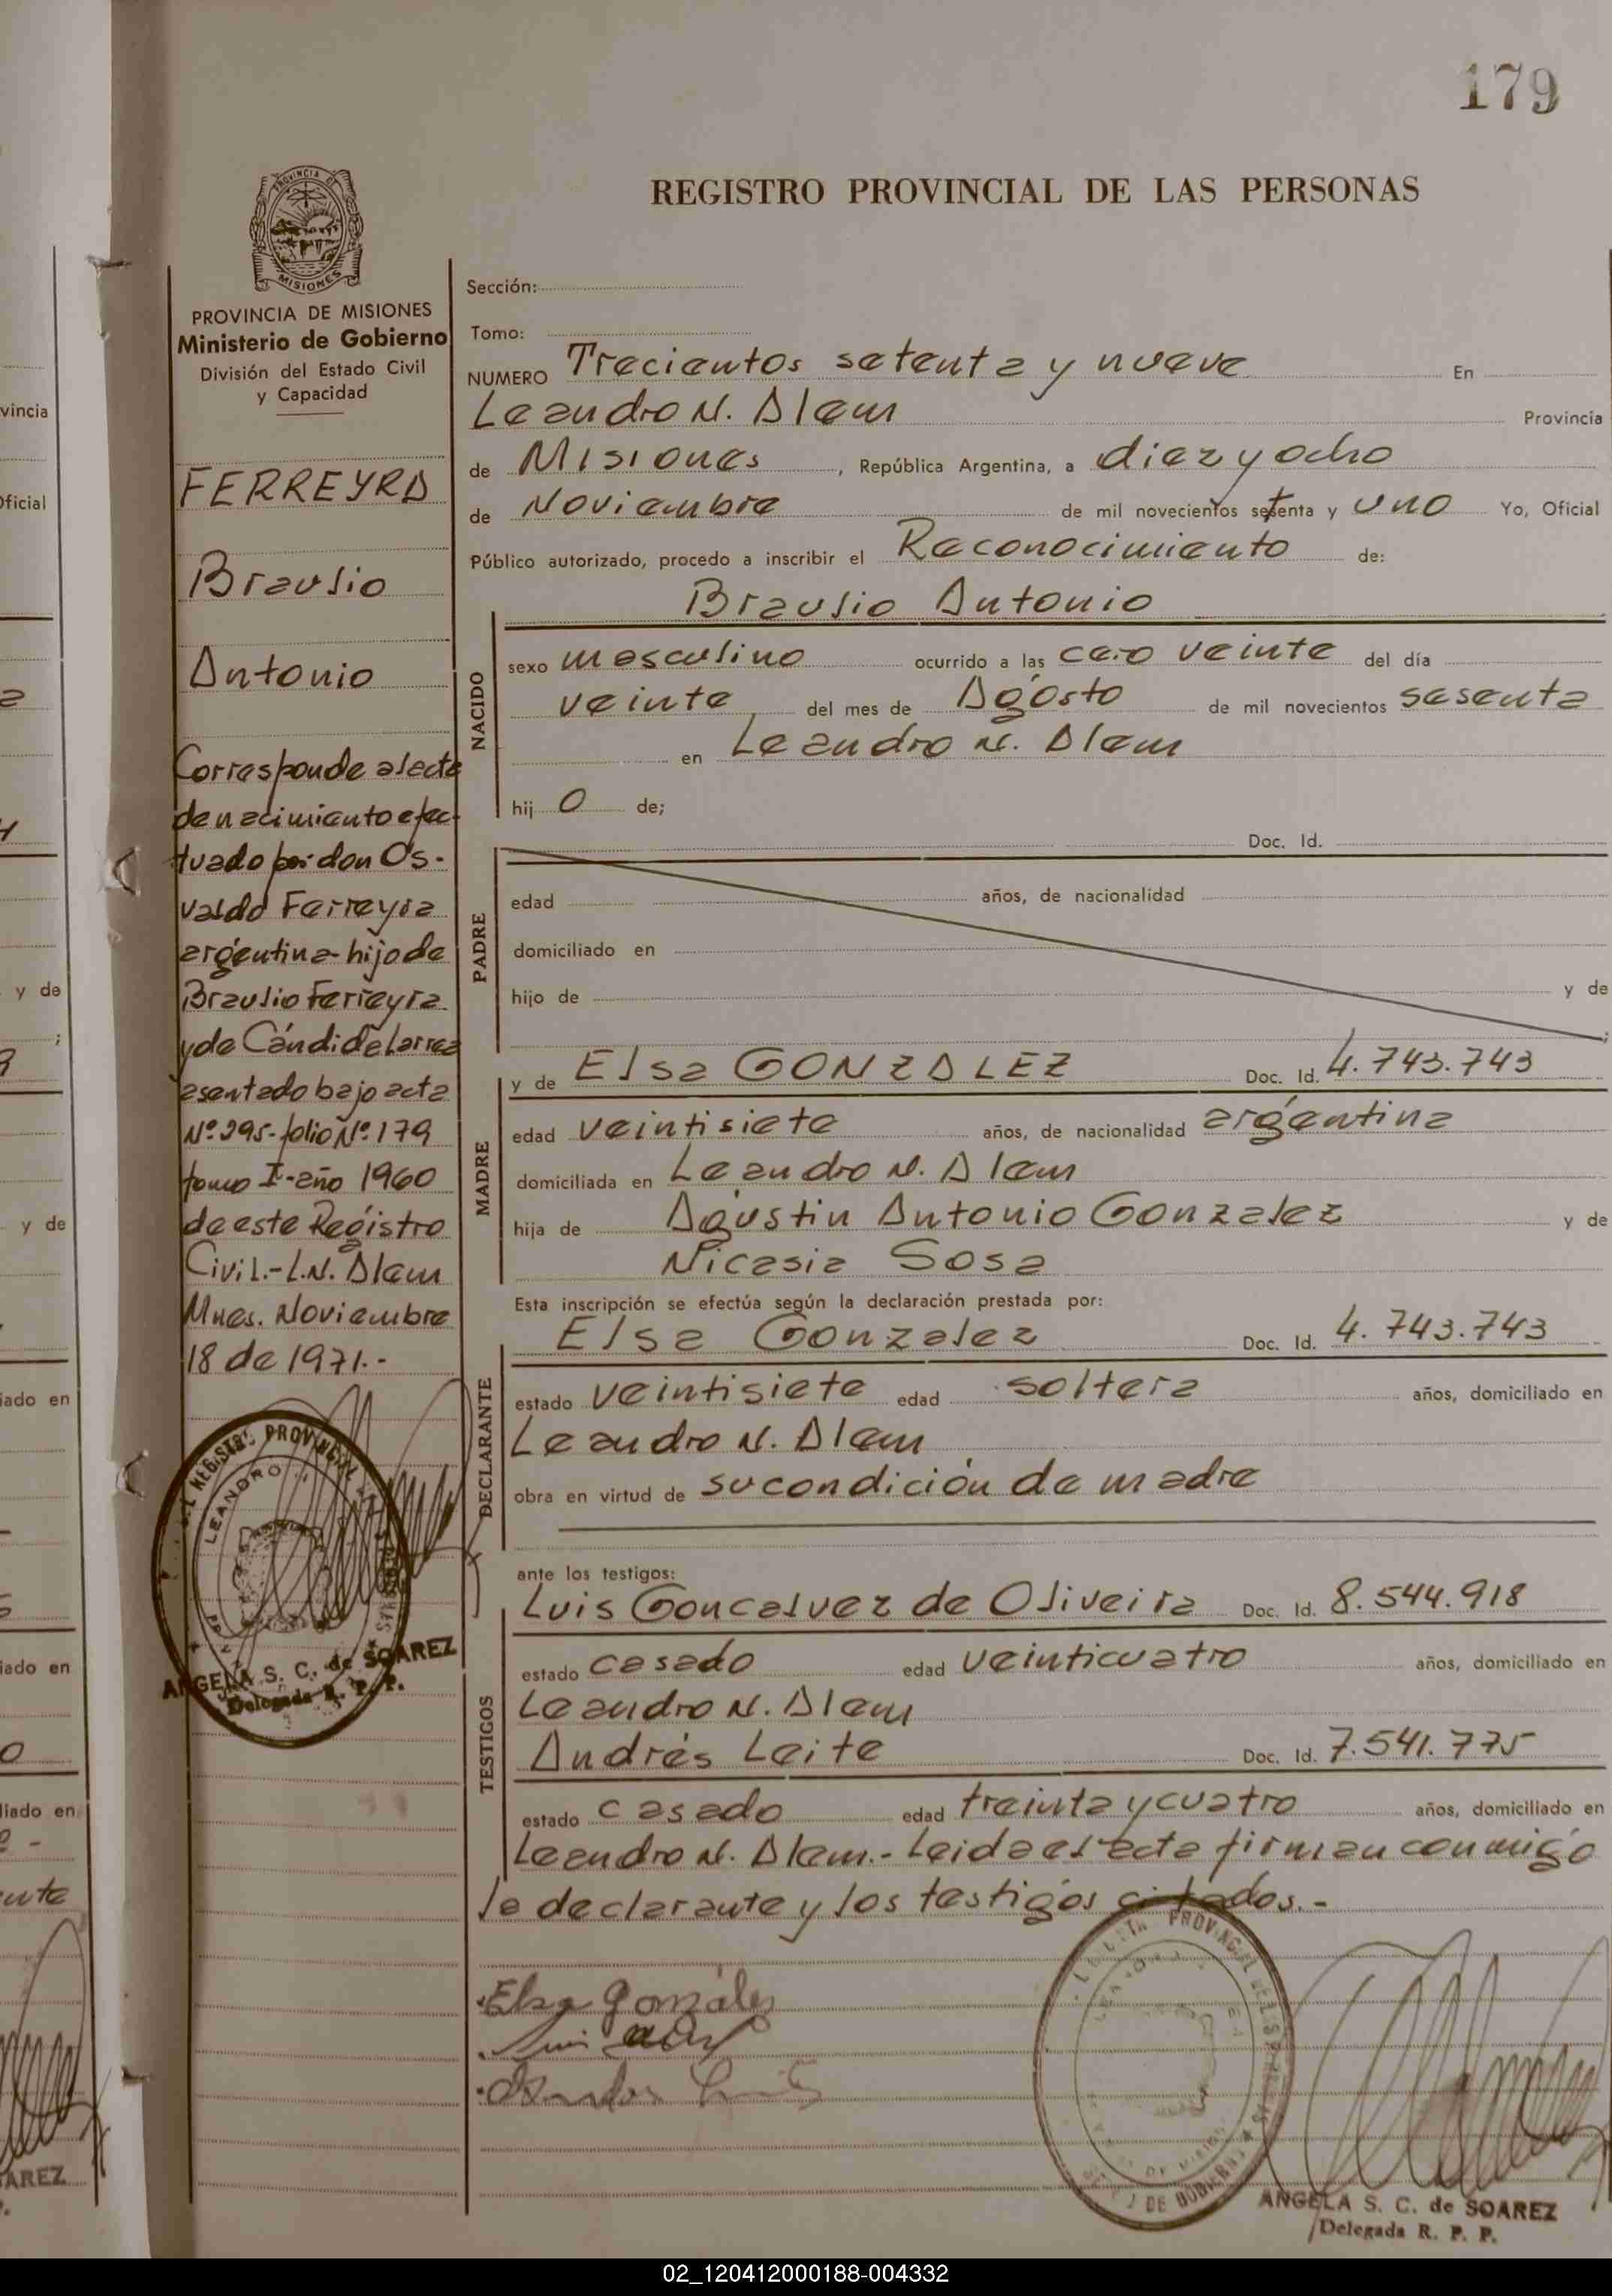 179
REGISTRO PROVINCIAL DE LAS PERSONAS
PROVINCIA DE MISIONES
MISIONES
PROVINCIA DE MISIONES
Ministerio de Gobierno
División del Estado Civil
y Capacidad
FERREYRA
Braulio
Antonio
Corresponde al acta
de nacimiento efec-
tuado por don Os-
valdo Ferreyra
argentina-hijo de
Braulio Ferreyra
y de Cándida Larrea
asentado bajo acta
Nº 295-folio Nº 179
tomo I-año 1960
de este Registro
Civil.-L.N. Alem
Mnes. Noviembre
18 de 1971.-
PROVINCIAL
LEANDRO
ANGELA S. C. de SOAREZ
Delegada R. P. P.
Sección:
Tomo:
NUMERO Trecientos setenta y nueve En
Leandro N. Alem Provincia
de Misiones, República Argentina, a diez y ocho
de Noviembre de mil novecientos setenta y uno Yo, Oficial
Público autorizado, procedo a inscribir el Reconocimiento de:
Braulio Antonio
NACIDO
sexo masculino ocurrido a las cero veinte del día
veinte del mes de Agosto de mil novecientos sesenta
en Leandro N. Alem
hij o de;
PADRE
Doc. Id.
edad años, de nacionalidad
domiciliado en
hijo de y de
;
MADRE
y de Elsa GONZALEZ Doc. Id. 4.743.743
edad veintisiete años, de nacionalidad argentina
domiciliada en Leandro N. Alem
hija de Agustin Antonio Gonzalez y de
Nicasia Sosa
Esta inscripción se efectúa según la declaración prestada por:
DECLARANTE
Elsa Gonzalez Doc. Id. 4.743.743
estado veintisiete edad soltera años, domiciliado en
Leandro N. Alem
obra en virtud de su condición de madre
ante los testigos:
TESTIGOS
Luis Goncalvez de Oliveira Doc. Id. 8.544.918
estado casado edad veinticuatro años, domiciliado en
Leandro N. Alem
Andrés Leite Doc. Id. 7.541.775
estado casado edad treinta y cuatro años, domiciliado en
Leandro N. Alem.- Leida el acta firman conmigo
la declarante y los testigos citados.-
Elsa Gonzáles
ANGELA S. C. de SOAREZ
Delegada R. P. P.
vincia
Oficial
y de
;
y de
iado en
iado en
liado en
AREZ
02_120412000188-004332